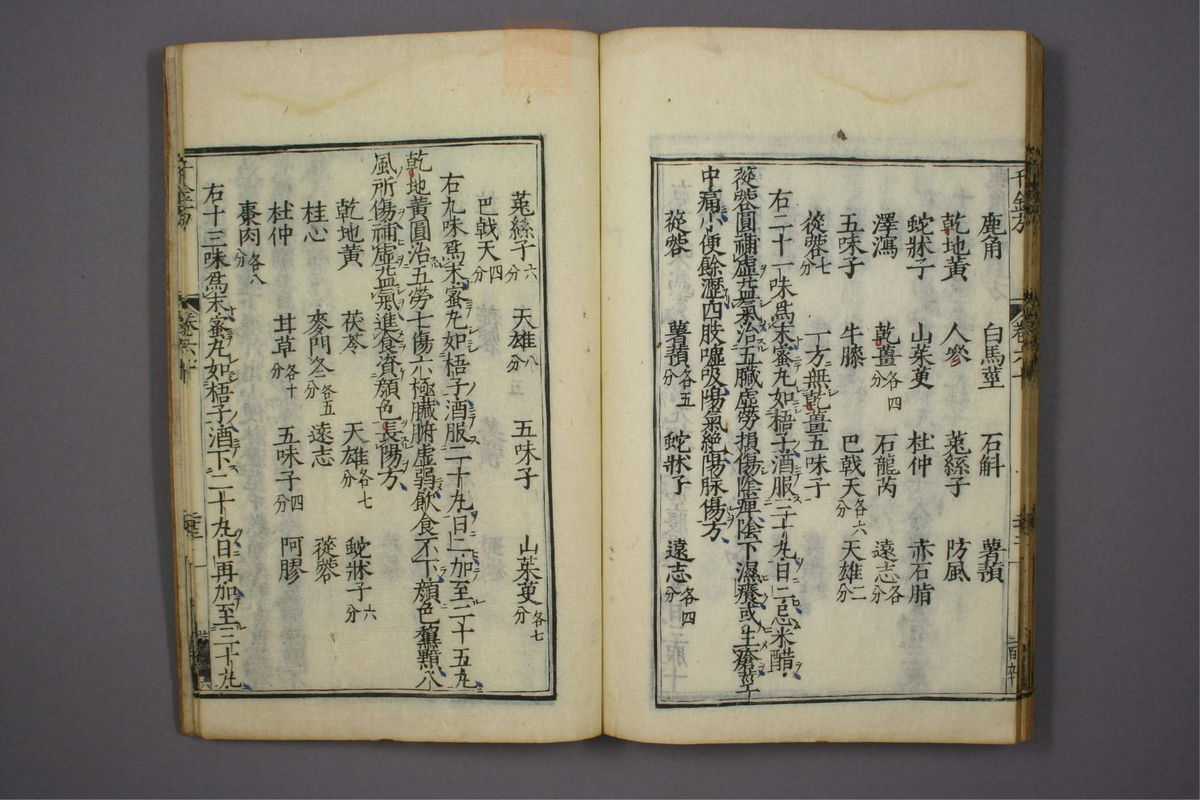 鹿角 白馬莖 石斛 薯蕷
乾地黄 人參 菟絲子 防風
蛇牀子 山茱萸 杜仲 赤石脂
澤瀉 乾薑各四分 石龍芮 遠志各分
五味子 牛膝 巴戟天各六分 天雄二分
蓯蓉七分 一方無乾薑五味子
右二十一味爲末蜜丸如梧子酒服三十丸日二忌米醋
蓯蓉圓補虛益氣治五臟虛勞損傷陰痺陰下濕癢或生瘡莖
中痛小便餘瀝四肢噓吸陽氣絶陽脉傷方
蓯蓉 薯蕷各五分 蛇牀子 遠志各四分
菟絲子六分 天雄八分 五味子 山茱萸各七分
巴戟天四分
右九味爲末蜜丸如梧子酒服二十丸日二加至二十五丸
乾地黄圓治五勞七傷六極臟腑虛弱飲食不下顔色黧黯八
風所傷補虛益氣進食資顔色長陽方
乾地黄 茯苓 天雄各七分 蛇牀子六分
桂心 麥門冬各五分 遠志 蓯蓉
杜仲 甘草各十分 五味子四分 阿膠
棗肉各八分
右十三味爲末蜜丸如梧子酒下二十丸日再加至三十丸